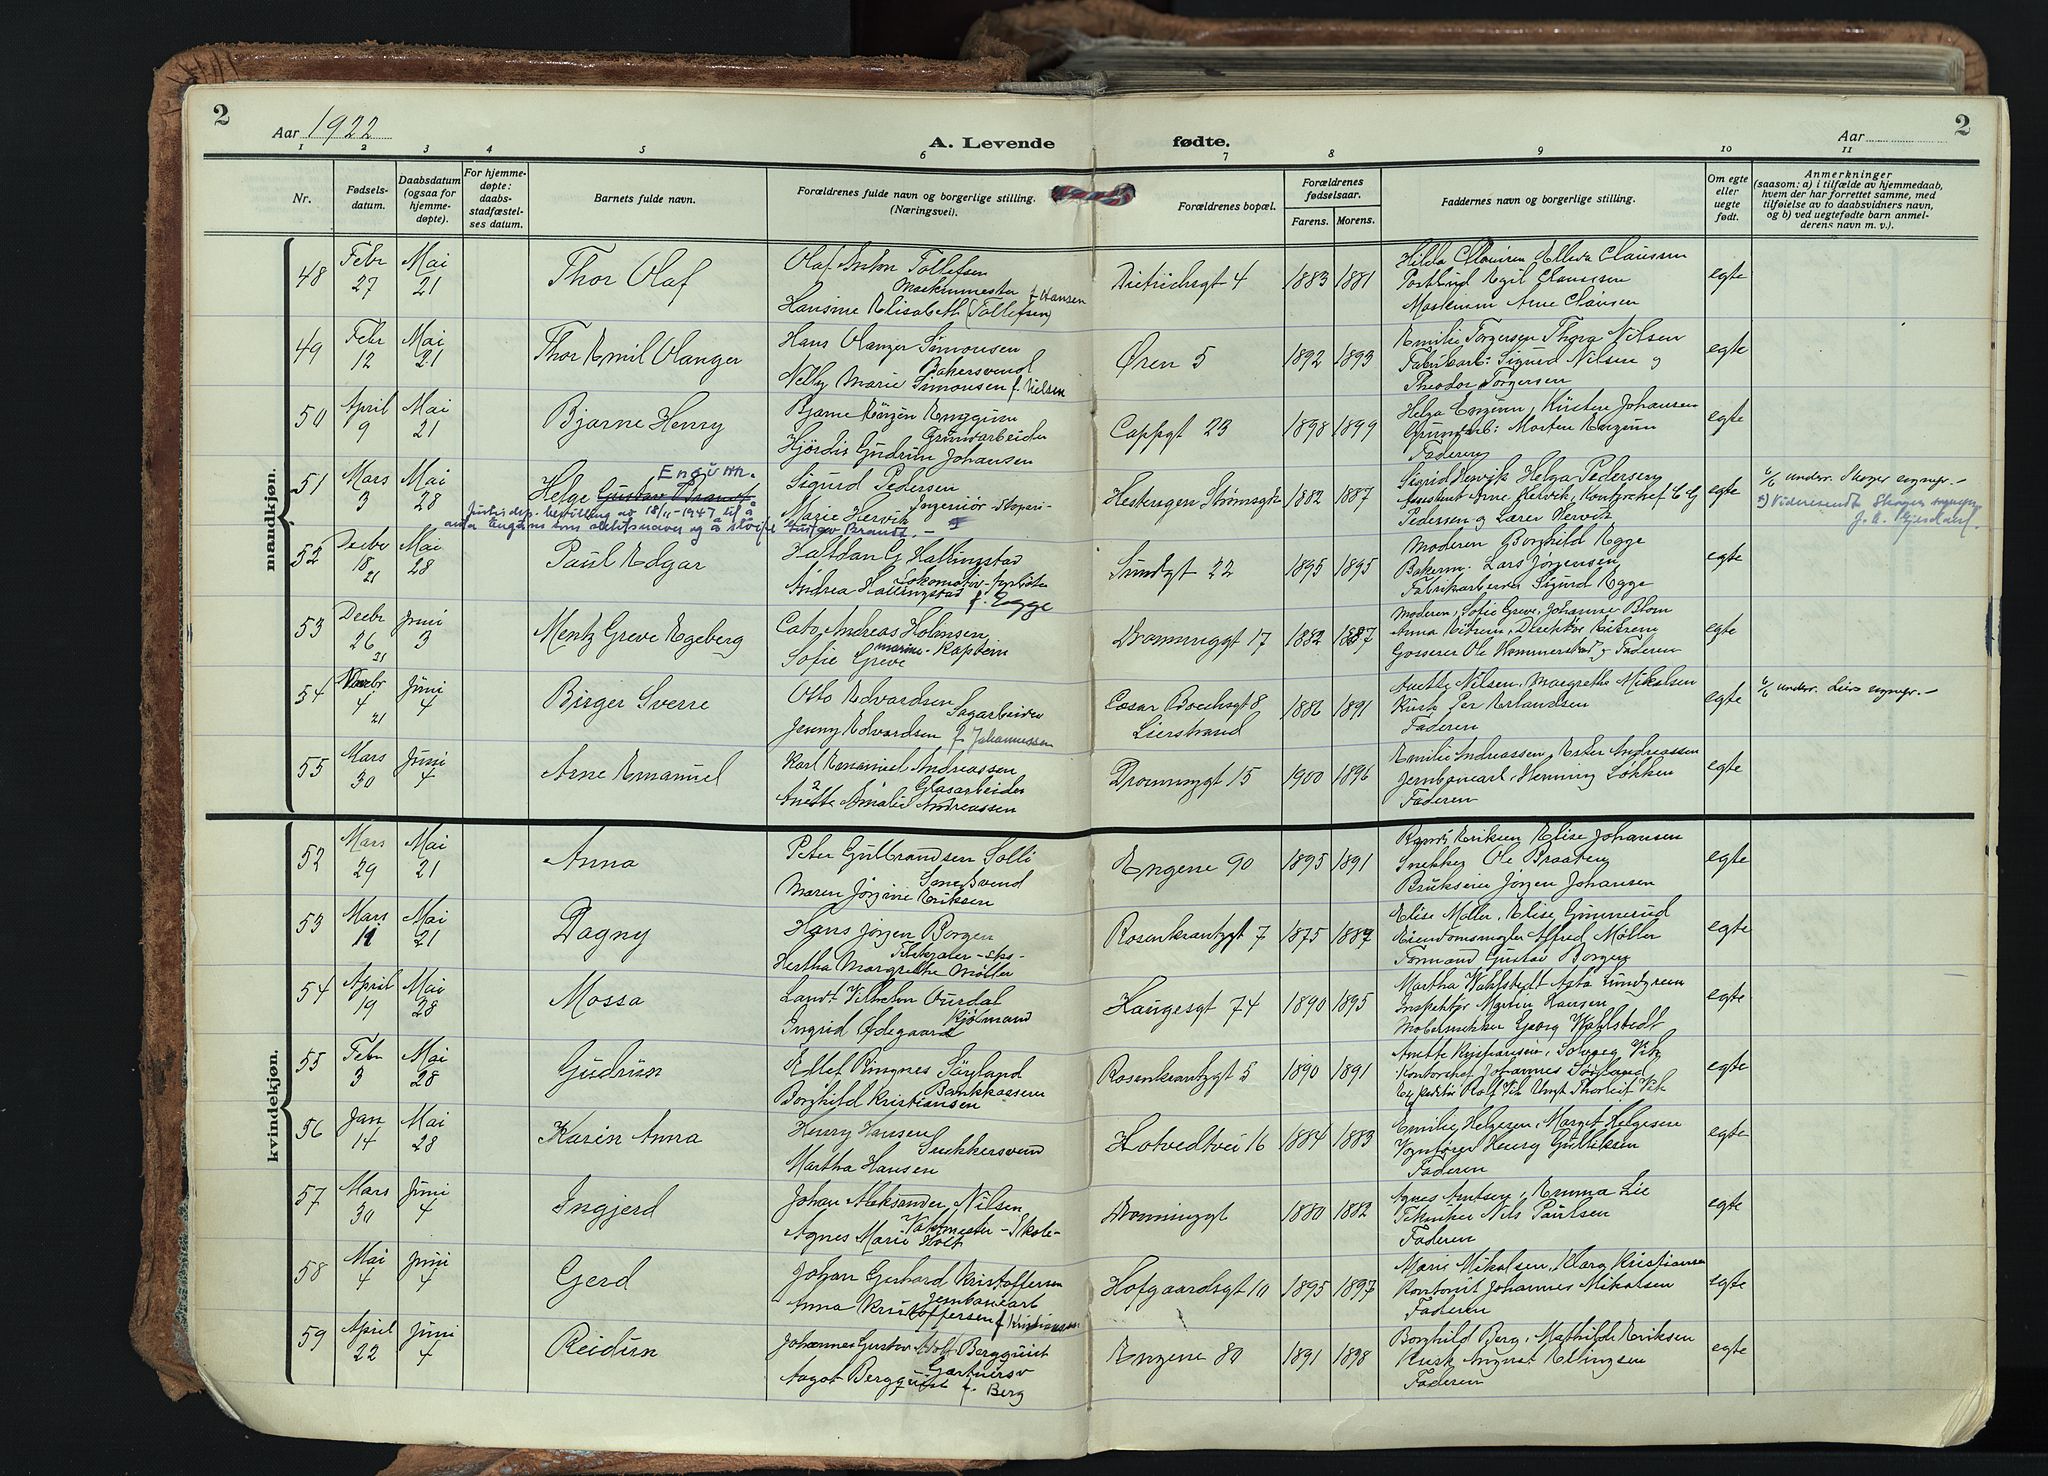 2
Aar 1922
A. Levende fødte.
Aar
2
1 2 3 4 5 6 7 8 9 10 11
Nr.
Fødsels-
datum.
Daabsdatum
(ogsaa for
hjemme-
døpte).
For hjemme-
døpte:
daabs-
stadfæstel-
ses datum.
Barnets fulde navn.
Forældrenes fulde navn og borgerlige stilling.
(Næringsvei).
Forældrenes bopæl.
Forældrenes
fødselsaar.
Farens. Morens.
Faddernes navn og borgerlige stilling.
Om egte
eller
uegte
født.
Anmerkninger
(saasom: a) i tilfælde av hjemmedaab,
hvem der har forrettet samme, med
tilføielse av to daabsvidners navn,
og b) ved uegtefødte barn anmel-
derens navn m. v.).
mandkjøn.
48 Febr 27 Mai 21 Thor Olaf
Olaf Anton Tollefsen
Maskinmester f Hansen
Hansine Elisabeth (Tollefsen)
Dietrichsgt 4 1883 1881
Hilda Clausen
Egil Claussen
Arne Clausen
egte
49 Febr 12 Mai 21 Thor Emil Olanger
Hans Olanger Simonsen
Bakersvend
Nelly Marie Simonsen f. Nielsen
Øren 5 1892 1893
Emilie Torgersen Thora Nilsen
Fabrikarb: Sigurd Nilsen og
Theodor Torgersen
egte
50 April 9 Mai 21 Bjarne Henry
Bjarne
Grunarbeider
Hjørdis Gudrun Johansen
Cappgt 23 1898 1899
Helga Engum, Kirstene Johansen
Morten Engum
Faderen
egte
51 Mars 3 Mai 28 Helge Gustav Brandt
Engum.
Justisdep. bevilling av 18/11-1947 til å
anta Engum som slektsnavn og å sløife Gustav Brandt. -
Sigurd Pedersen
Ingeniør
Marie Hervik
1882 1887
Sigrid Hervik Helga Pedersen
Assistent Arne Hervik, Kontorchef C G
Pedersen og Lærer Hervik
egte
6/6 underr. Skoger sogнepr. -
52 Decbr 18 21 Mai 28 Paul Edgar
Halfdan G. Hallingstad
Lokomotiv-fyrbøter
Andrea Hallingstad f. Egge
Sundgt 22 1895 1895
Moderen Borghild Egge
Bakerm. Lars Jørgensen
Fabrikarbeider Sigurd Egge
egte
53 Decbr 26 21 Juni 3 Mentz Greve Egeberg
Cato Andreas Holmsen
marine-Kaptein
Sofie Greve
Dronninggt 17 1882 1887
Moderen, Sofie Greve, Johanne Blom
Anna Eitrem, Direktør Eitrem
Grosserer Ole Hommerstad og Faderen
egte
54 4 21 Juni 4 Birger Sverre
Otto Edvardsen
Sagarbeider
Jenny Edvardsen f Johannessen
Cæsar Boechsgt 8
Lierstrand
1886 1891
Anette Nilsen, Margrethe Mikalsen
Kusk Per Erlandsen
Faderen
egte
6/6 underr. Liers sognepr. -
55 Mars 30 Juni 4 Arne Emanuel
Karl Emanuel Andreassen
Glasarbeider
Anette Amalie Andreassen
Dronninggt 15 1900 1896
Emilie Andreassen, Ester Andreassen
Jernbanearb, Henning Løkken
Faderen
egte
kvindekjøn.
52 Mars 29 Mai 21 Anna
Peter Gulbrandsen Solli
Smedsvend
Maren Jørgine Eriksen
Engene 90 1895 1891
Randi Eriksen Elise Johansen
Snekker Ole Braaten
Brukseier Jørgen Johansen
egte
53 Mars 11 Mai 21 Dagny
Hans Jørgen Borgen
Hertha Margrethe Møller
Rosenkrantzgt 7 1875 1887
Elise Møller, Elise Gunnerud
Eiendomsmægler Alfred Møller
Formand Gustav Borgen
egte
54 April 19 Mai 28 Mossa
Landt Vilhelm Aurdal
Kjøbmand
Ingrid Ødegaard
Haugesgt 74 1890 1895
Martha Wahlstedt Asta Lundgreen
Inspektør Martin Hansen
Møbelsnekker Georg Wahlstedt
egte
55 Febr 3 Mai 28 Gudrun
Edlef Ringnes Sørland
Bankkasserer
Borghild Kristiansen
Rosenkrantzgt 5 1890 1891
Anette Kristiansen, Solveig Vik
Kontorchef Johannes Sørland
Expeditør Rolf Vik Ungt Thorleif Vik
egte
56 Jan 14 Mai 28 Karin Anna
Henry Hansen
Snekkersvend
Martha Hansen
Hotvedtvei 16 1884 1883
Emilie Helgesen, Margit Helgesen
Vognfører Henry Gulliksen
Faderen
egte
57 Mars 30 Juni 4 Ingjerd
Johan Aleksander Nilsen
Vaktmester-Skole-
Agnes Marie Holt
Dronninggt 1880 1882
Agnes Amtsen, Emma Lie
Tekniker Nils Paulsen
Faderen
egte
58 Mai 4 Juni 4 Gerd
Johan Gerhard Kristoffersen
Jernbanearb
Anna Kristoffersen f Kristiansen
Hofgaardsgt 10 1895 1897
Marie Mikalsen, Klara Kristiansen
Kontorist Johannes Mikalsen
Faderen
egte
59 April 22 Juni 4 Reidun
Johannes Gustav Adolf Bergquist
Gartnersv
Aagot Bergquist f. Berg
Engene 80 1891 1898
Borghild Berg, Mathilde Eriksen
Kusk August Ellingsen
Faderen
egte